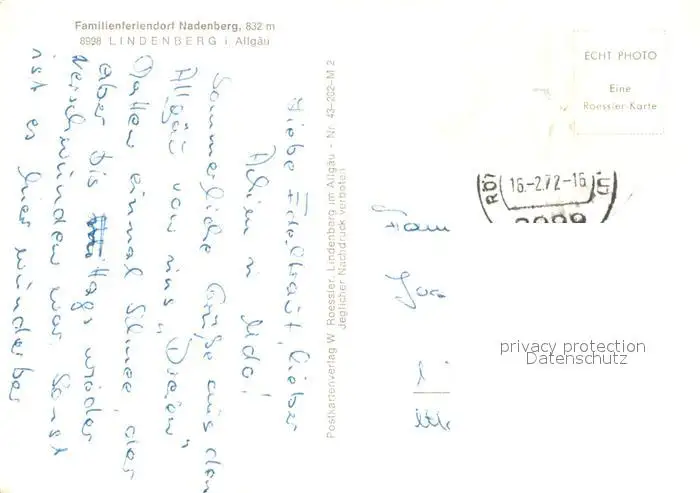 Familienferiendorf Nadenberg, 832 m
8998 LINDENBERG i Allgäu
Liebe Edeltraut, lieber
Achim u Udo!
Sommerliche Grüße aus dem
Allgäu von uns "Dreien"
Hatten einmal Schnee, der
aber bis Mittags wieder
verschwunden war. Sonst
ist es hier wunderbar
Postkartenverlag W. Roessler, Lindenberg im Allgäu - Nr. 43-202-M 2
Jeglicher Nachdruck verboten
ECHT PHOTO
Eine
Roessler-Karte
16.-2.72-16
Fam
privacy protection
Datenschutz